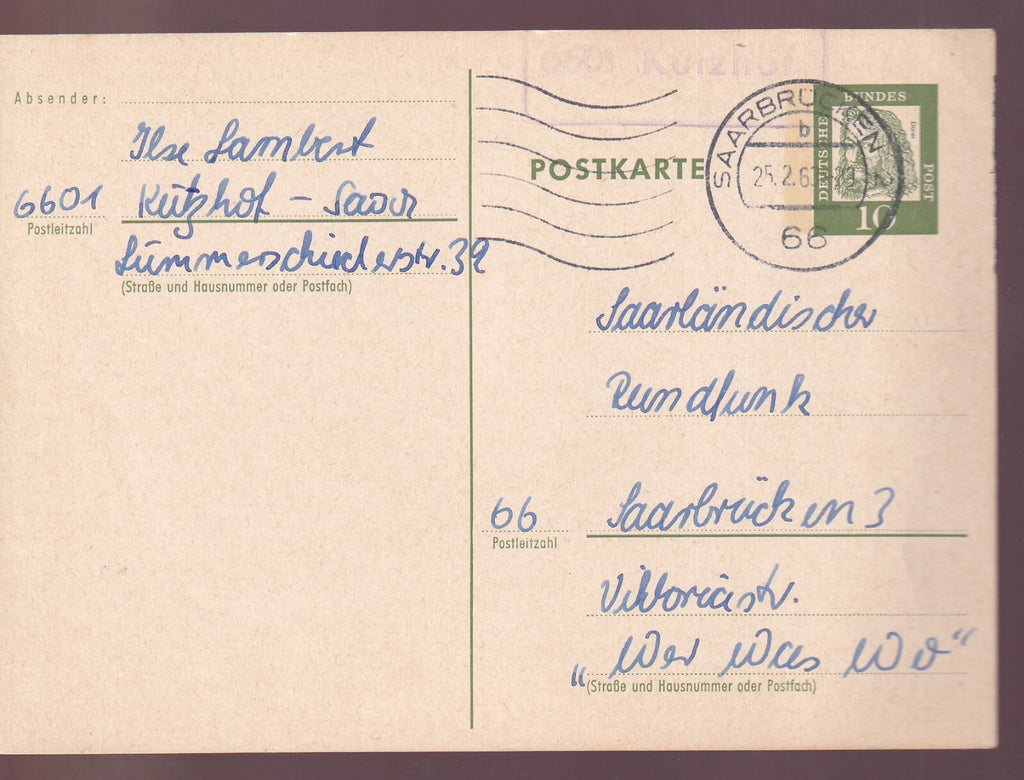 Absender:
Ilse Lambert
6601 Kutzhof - Saar
Postleitzahl
Lummerschiederstr. 39
(Straße und Hausnummer oder Postfach)
6601 Kutzhof
POSTKARTE
SAARBRÜCKEN 2
b
25.2.6
66
DEUTSCHE
BUNDES
POST
Dürer
10
Saarländischer
Rundfunk
66 Saarbrücken 3
Postleitzahl
Viktoriastr.
„Wer Was Wo“
(Straße und Hausnummer oder Postfach)